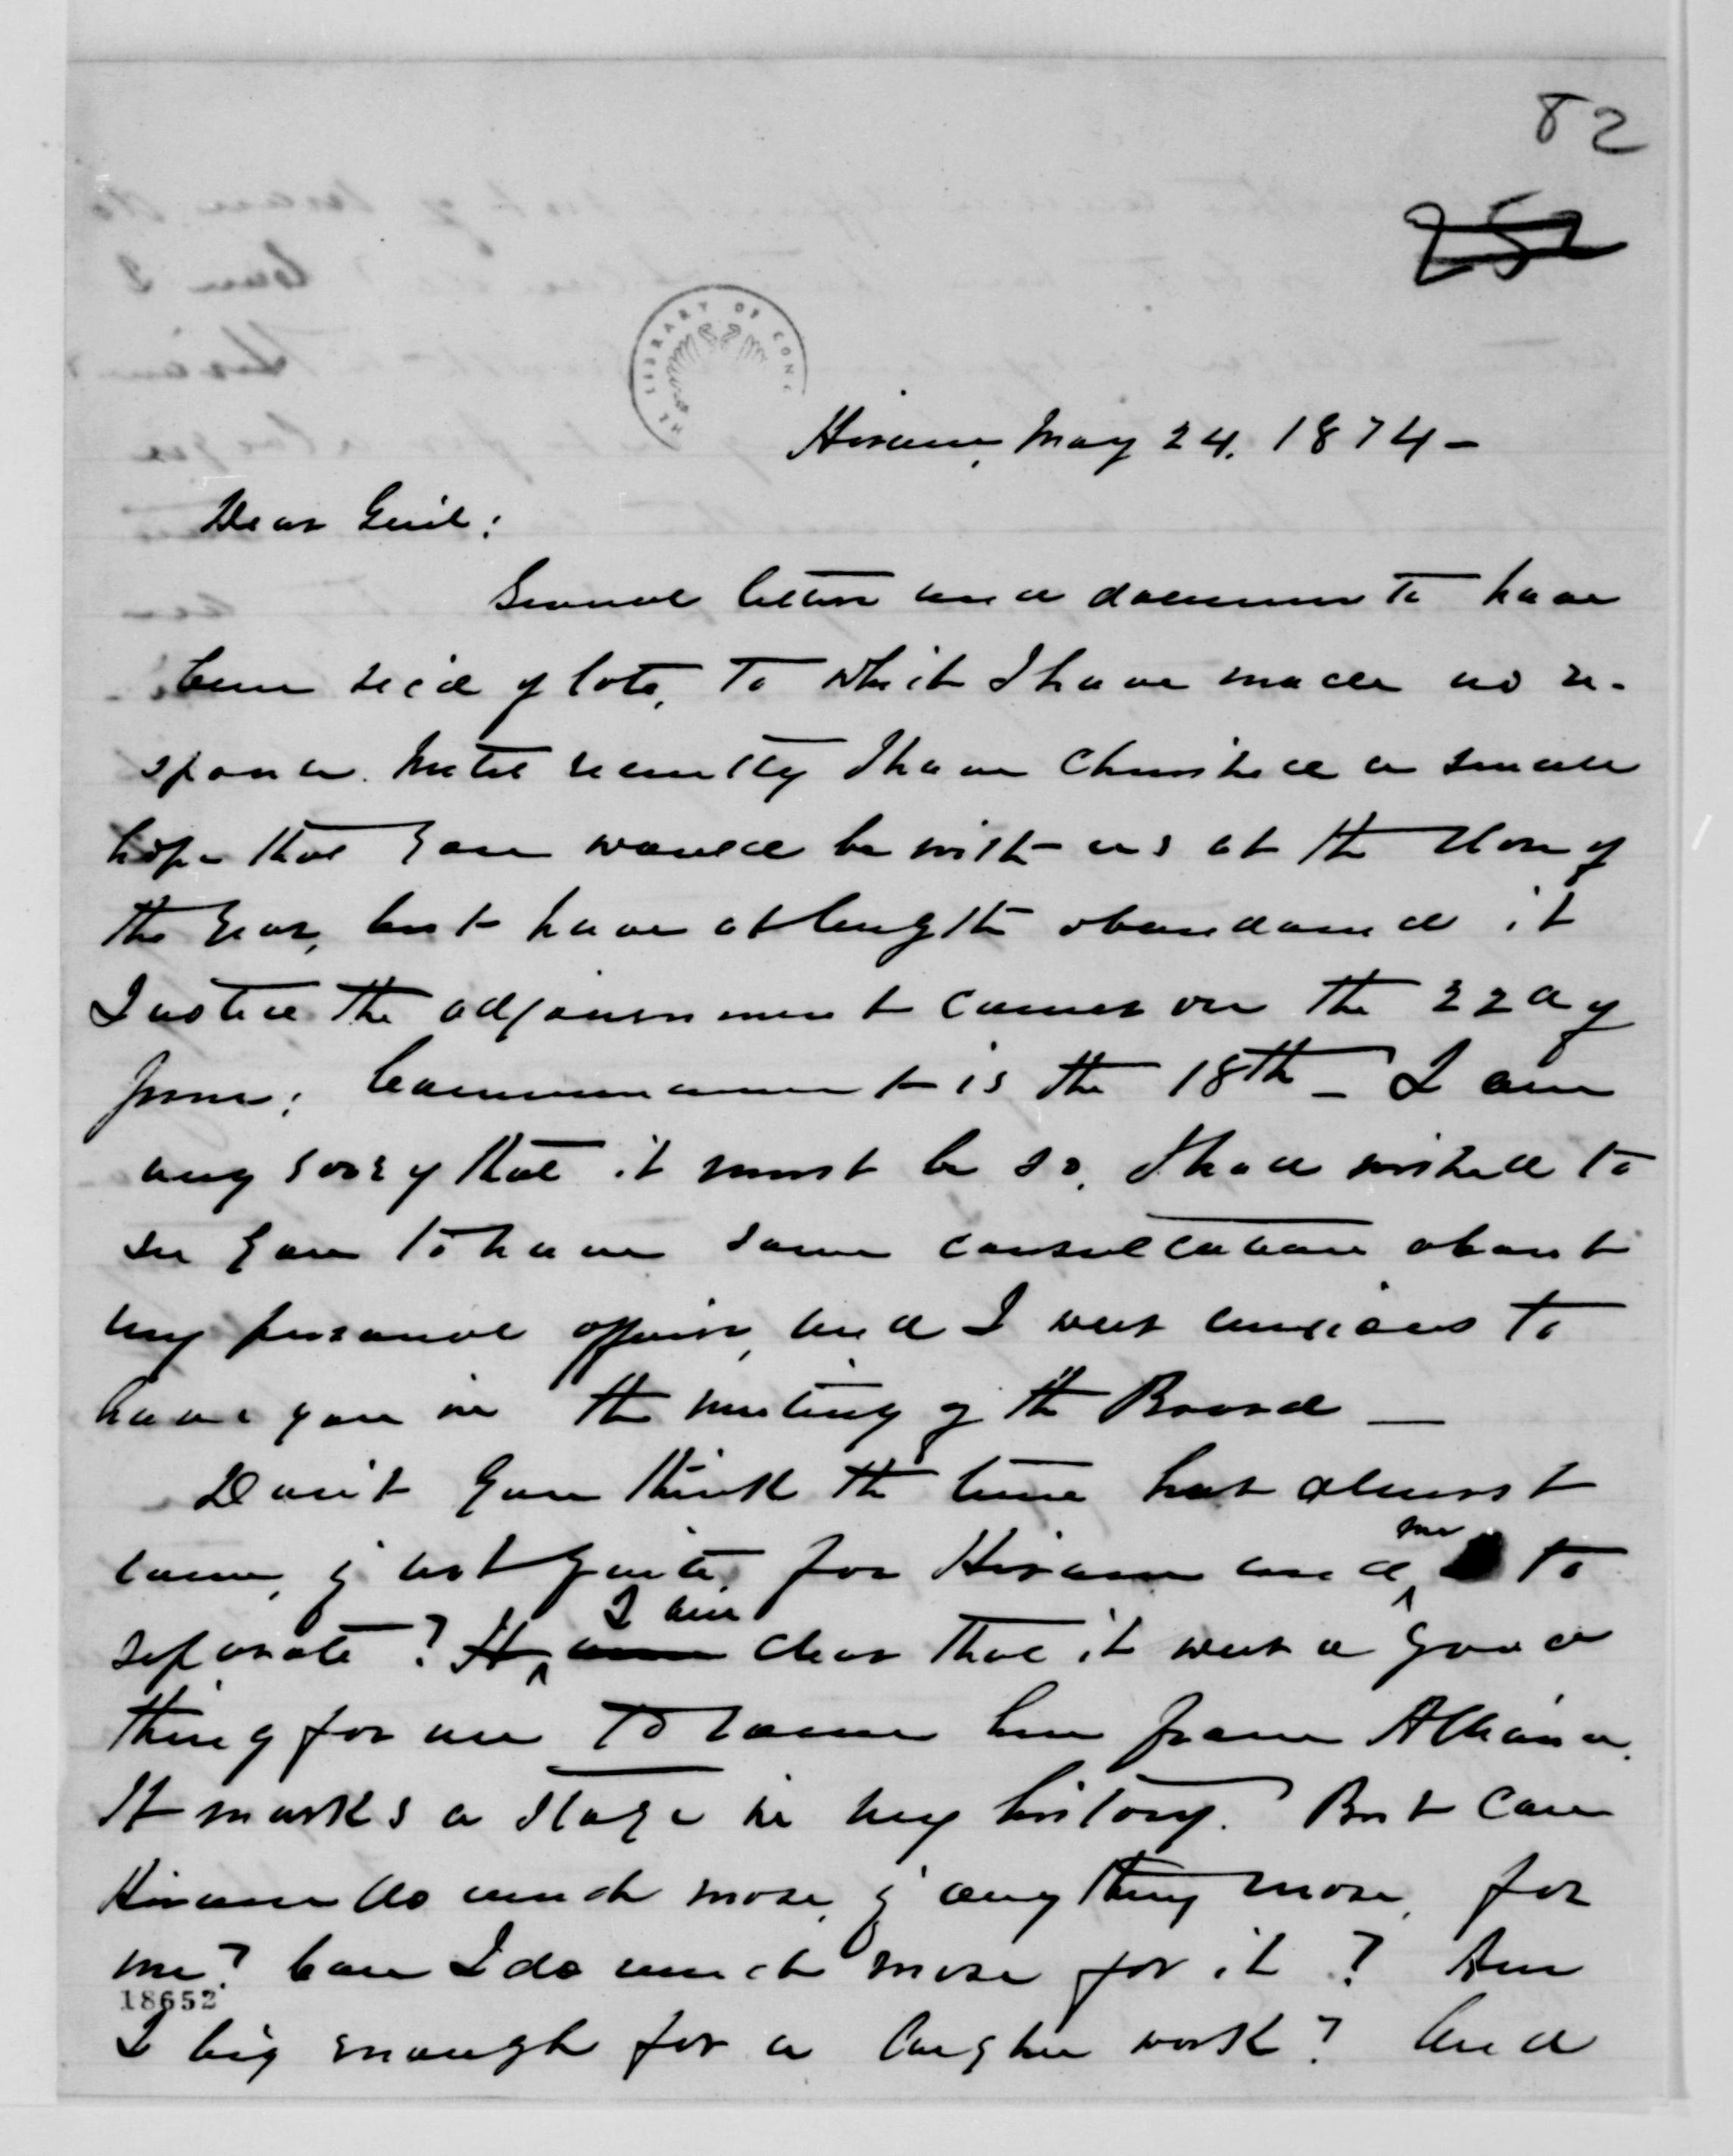 82
252
THE LIBRARY OF CONG
Hiram, May 24, 1874 –
Dear Genl:
Several letters and documents have
been rec'd of late, to which I have made no re-
sponse. Until recently I have cherished a small
hope that you would be with us at the close of
the year, but have at length abandoned it
I notice the adjournment comes on the 22d of
June; Commencement is the 18th – I am
very sorry that it must be so. I had wished to
see you to have some consultation about
my personal affairs, and I was anxious to
have you in the meeting of the Board —
Don't you think the time has almost
come, if not quite, for Hiram and me to
separate? It I am clear that it was a good
thing for me to come here from Alliance.
It marks a stage in my history. But can
Hiram do much more, if anything more, for
me? Can I do much more for it? Am
18652
I big enough for a larger work? And